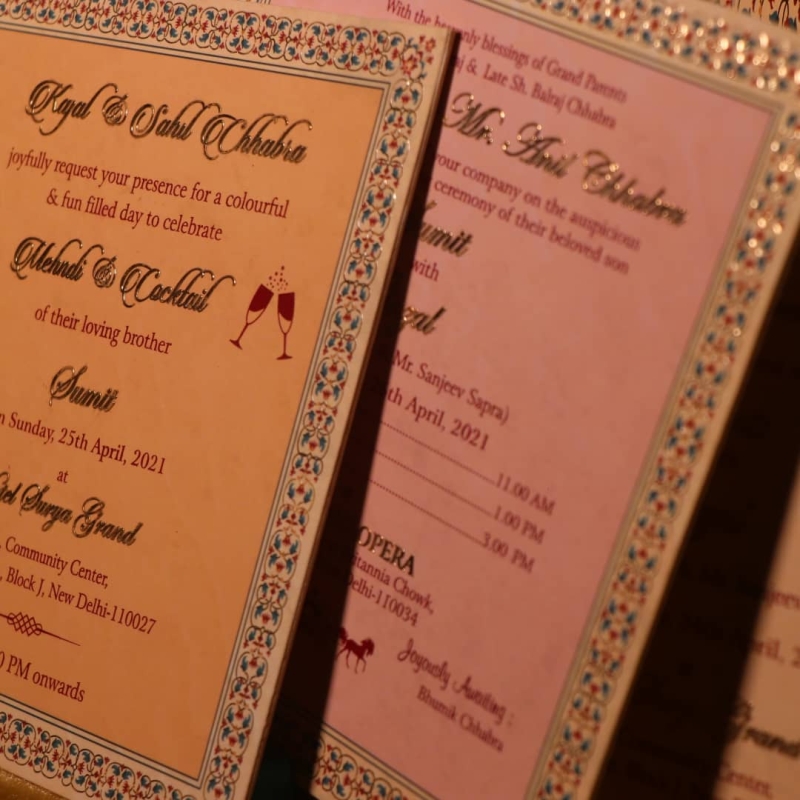 Kajal & Sahil Chhabra
joyfully request your presence for a colourful
& fun filled day to celebrate
Mehndi & Cocktail
of their loving brother
Sumit
Sunday, 25th April, 2021
at
Surya Grand
Community Center,
Block J, New Delhi-110027
PM onwards
With the heavenly blessings of Grand Parents
& Late Sh. Balraj Chhabra
Mr. Anil Chhabra
your company on the auspicious
ceremony of their beloved son
Sumit
with
Mr. Sanjeev Sapra)
April, 2021
11.00 AM
1.00 PM
3.00 PM
OPERA
Britannia Chowk,
Delhi-110034
Joyously Awaiting :
Bhumik Chhabra
Grand
Center,